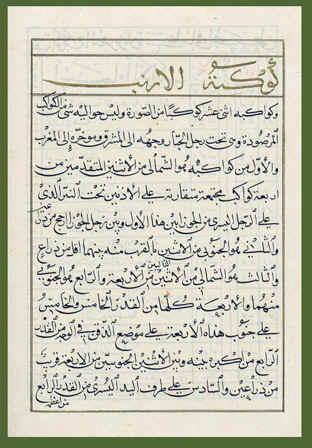 كوكبة الارنب
وكواكبه اثنى عشر كوكبًا من الصورة وليس حواليه شئ من الكواكب
المرصودة وهى تحت رجل الجبّار وجهه الى المشرق ومؤخّره الى المغرب
والاوّل من كواكبه هو الشمالىّ من الاثنين المتقدّمين من
اربعة كواكب مجتمعة متقاربة على الاذنين تحت النيّر الذى
على الرجل اليسرى من الجوزا بين هذا الاول وبين رجل الجوزا ارجح من ذراعين
والثانى هو الجنوبىّ من الاثنين والقرب منه بينهما اقل من ذراع
والثالث هو الشمالىّ من الاثنين التاليين من الاربعة والرابع هو الجنوبى
منهما والاربعة كلّها من القدر الخامس والخامس
على جنوب هذه الاربعة على موضع الذقن فى آخر من القدر
الرابع من اكبره بينه وبين الاثنين الجنوبيين من الاربعة قريب
من ذراعين والسادس على طرف اليد اليسرى من القدر الرابع
من اعظمه